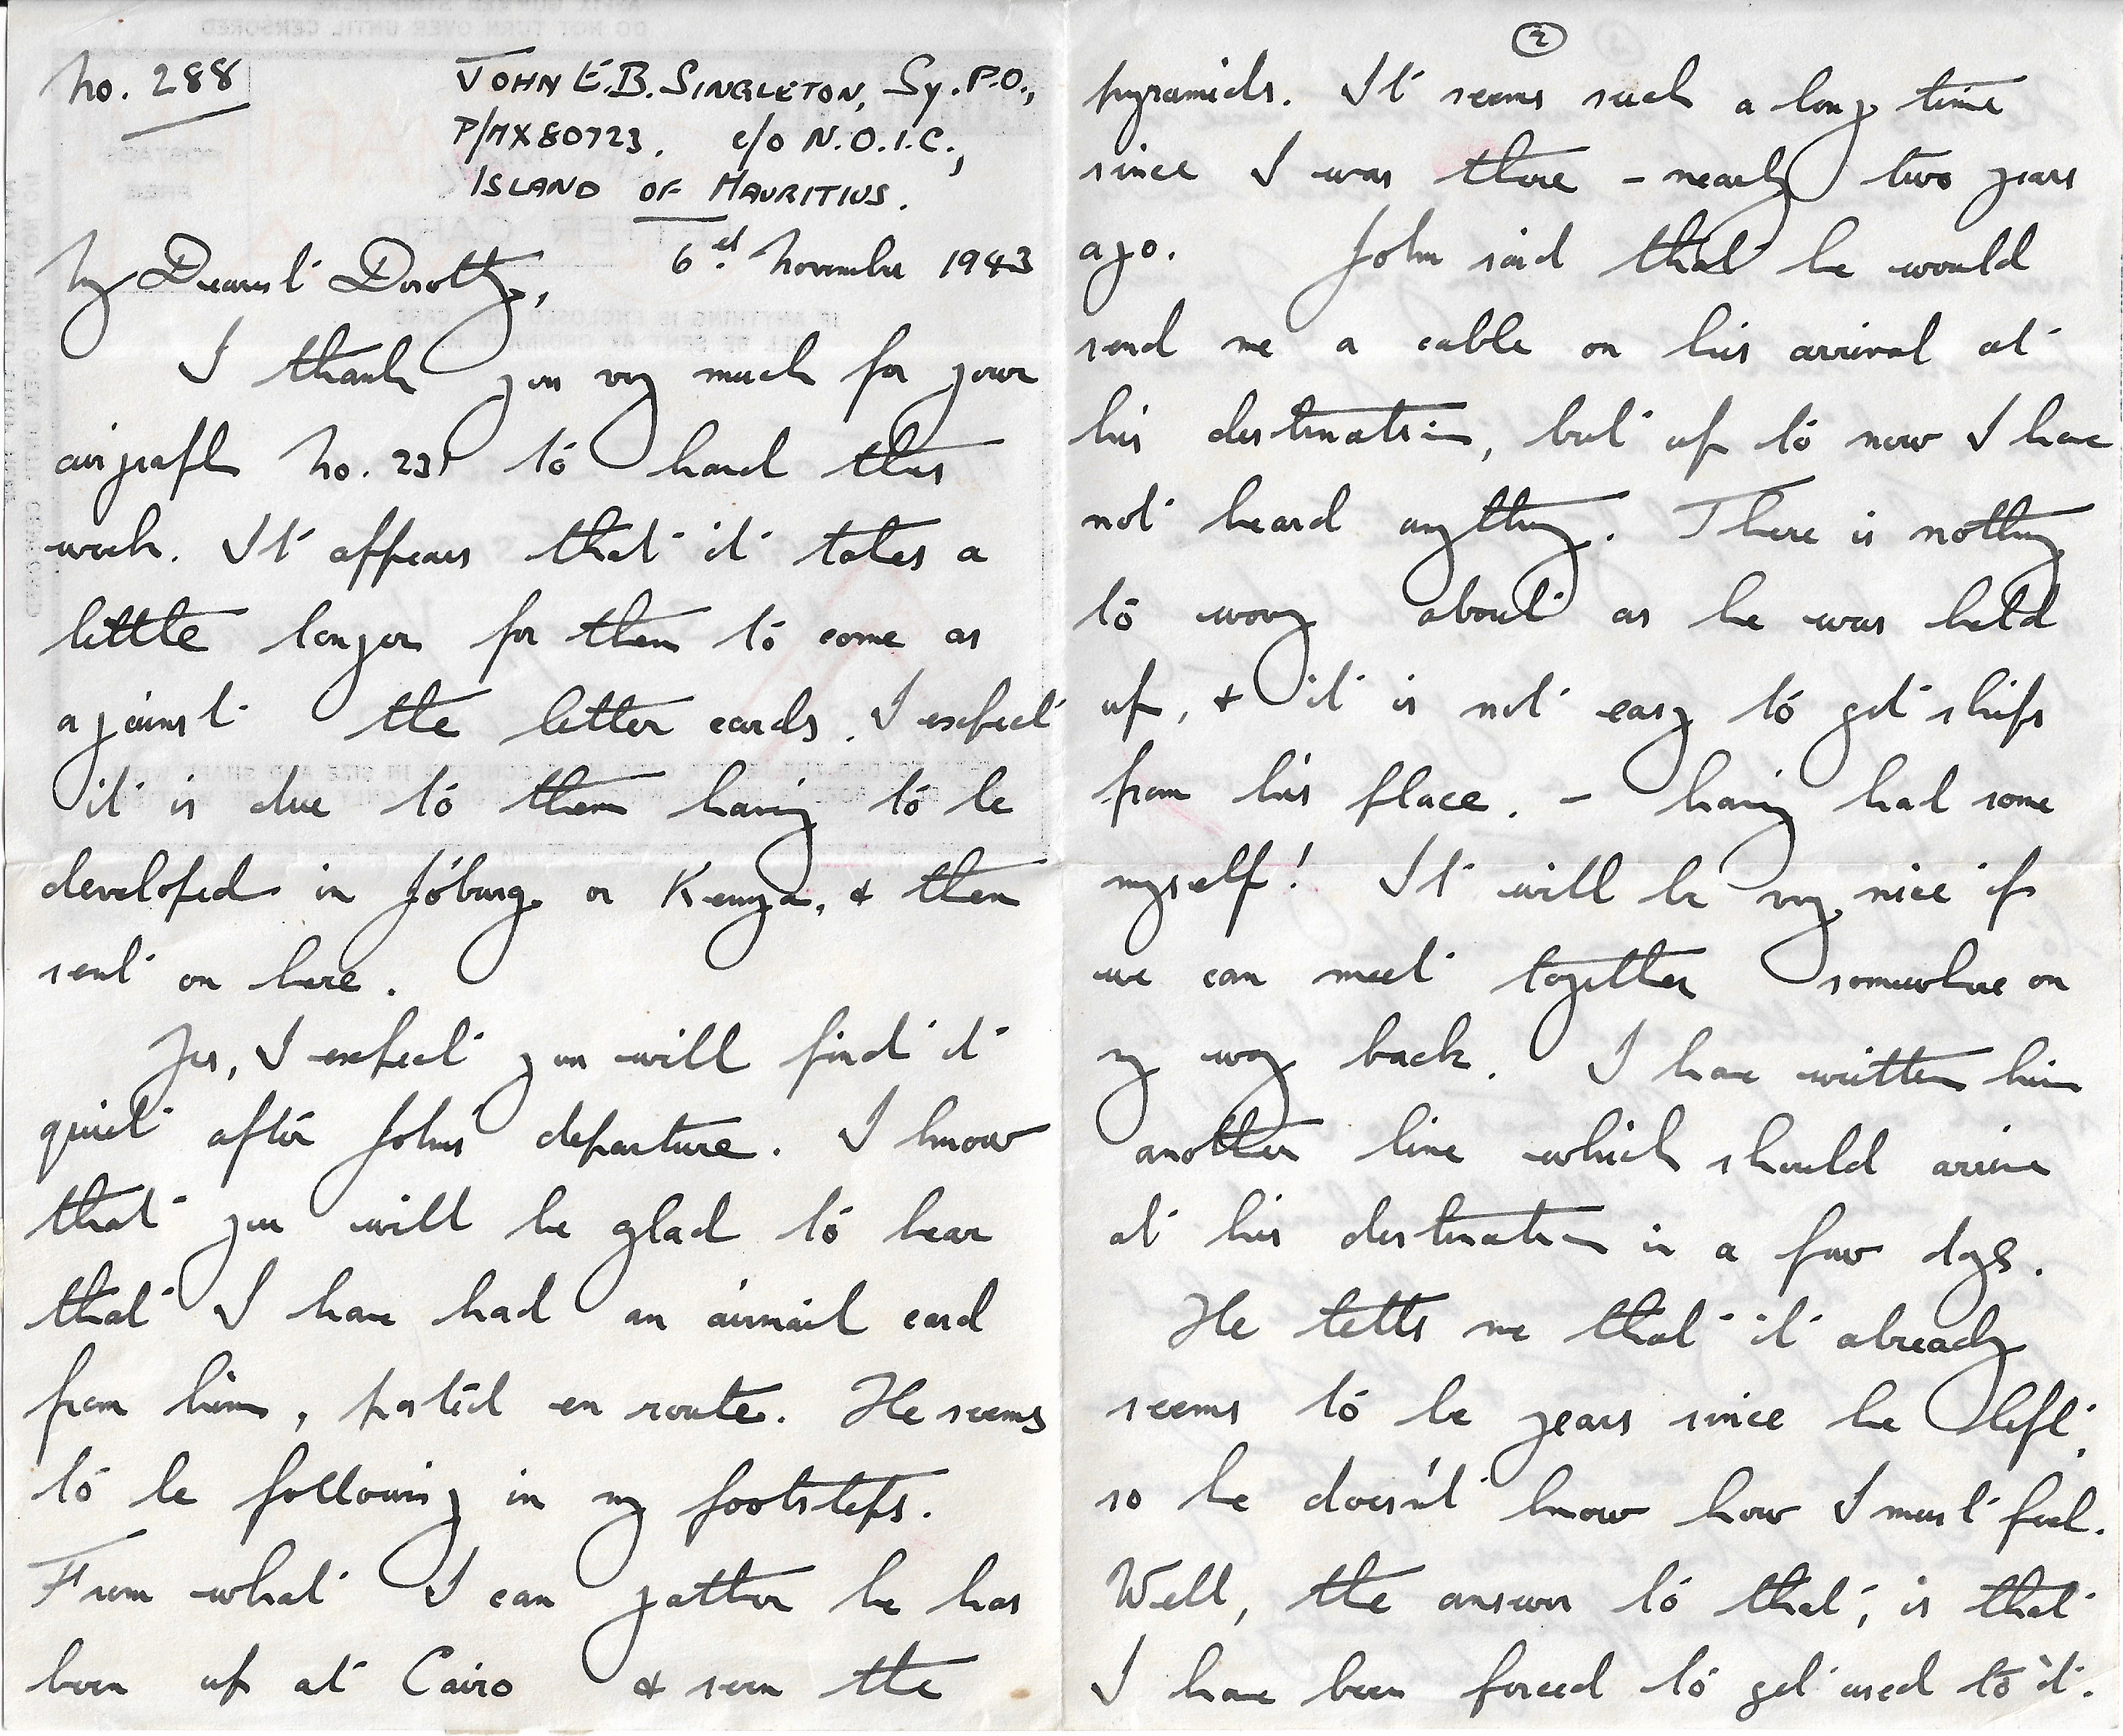 No. 288
JOHN E.B. SINGLETON, Sy. P.O.,
P/MX80723. c/o N.O.I.C.,
ISLAND OF MAURITIUS.
6th November 1943
My Dearest Dorothy,
I thank you very much for your
airgraph No. 231 to hand this
week. It appears that it takes a
little longer for them to come as
against the letter cards. I expect
it is due to them having to be
developed in Jo'burg or Kenya, & then
sent on here.
Yes, I expect you will find it
quiet after John's departure. I know
that you will be glad to hear
that I have had an airmail card
from him, posted en route. He seems
to be following in my footsteps.
From what I can gather he has
been up at Cairo & seen the
2
pyramids. It seems such a long time
since I was there - nearly two years
ago. John said that he would
send me a cable on his arrival at
his destination, but up to now I have
not heard anything. There is nothing
to worry about as he was held
up, & it is not easy to get ships
from his place. - having had some
myself! It will be very nice if
we can meet together somewhere on
my way back. I have written him
another line which should arrive
at his destination in a few days.
He tells me that it already
seems to be years since he left,
so he doesn't know how I must feel.
Well, the answer to that, is that
I have been forced to get used to it.